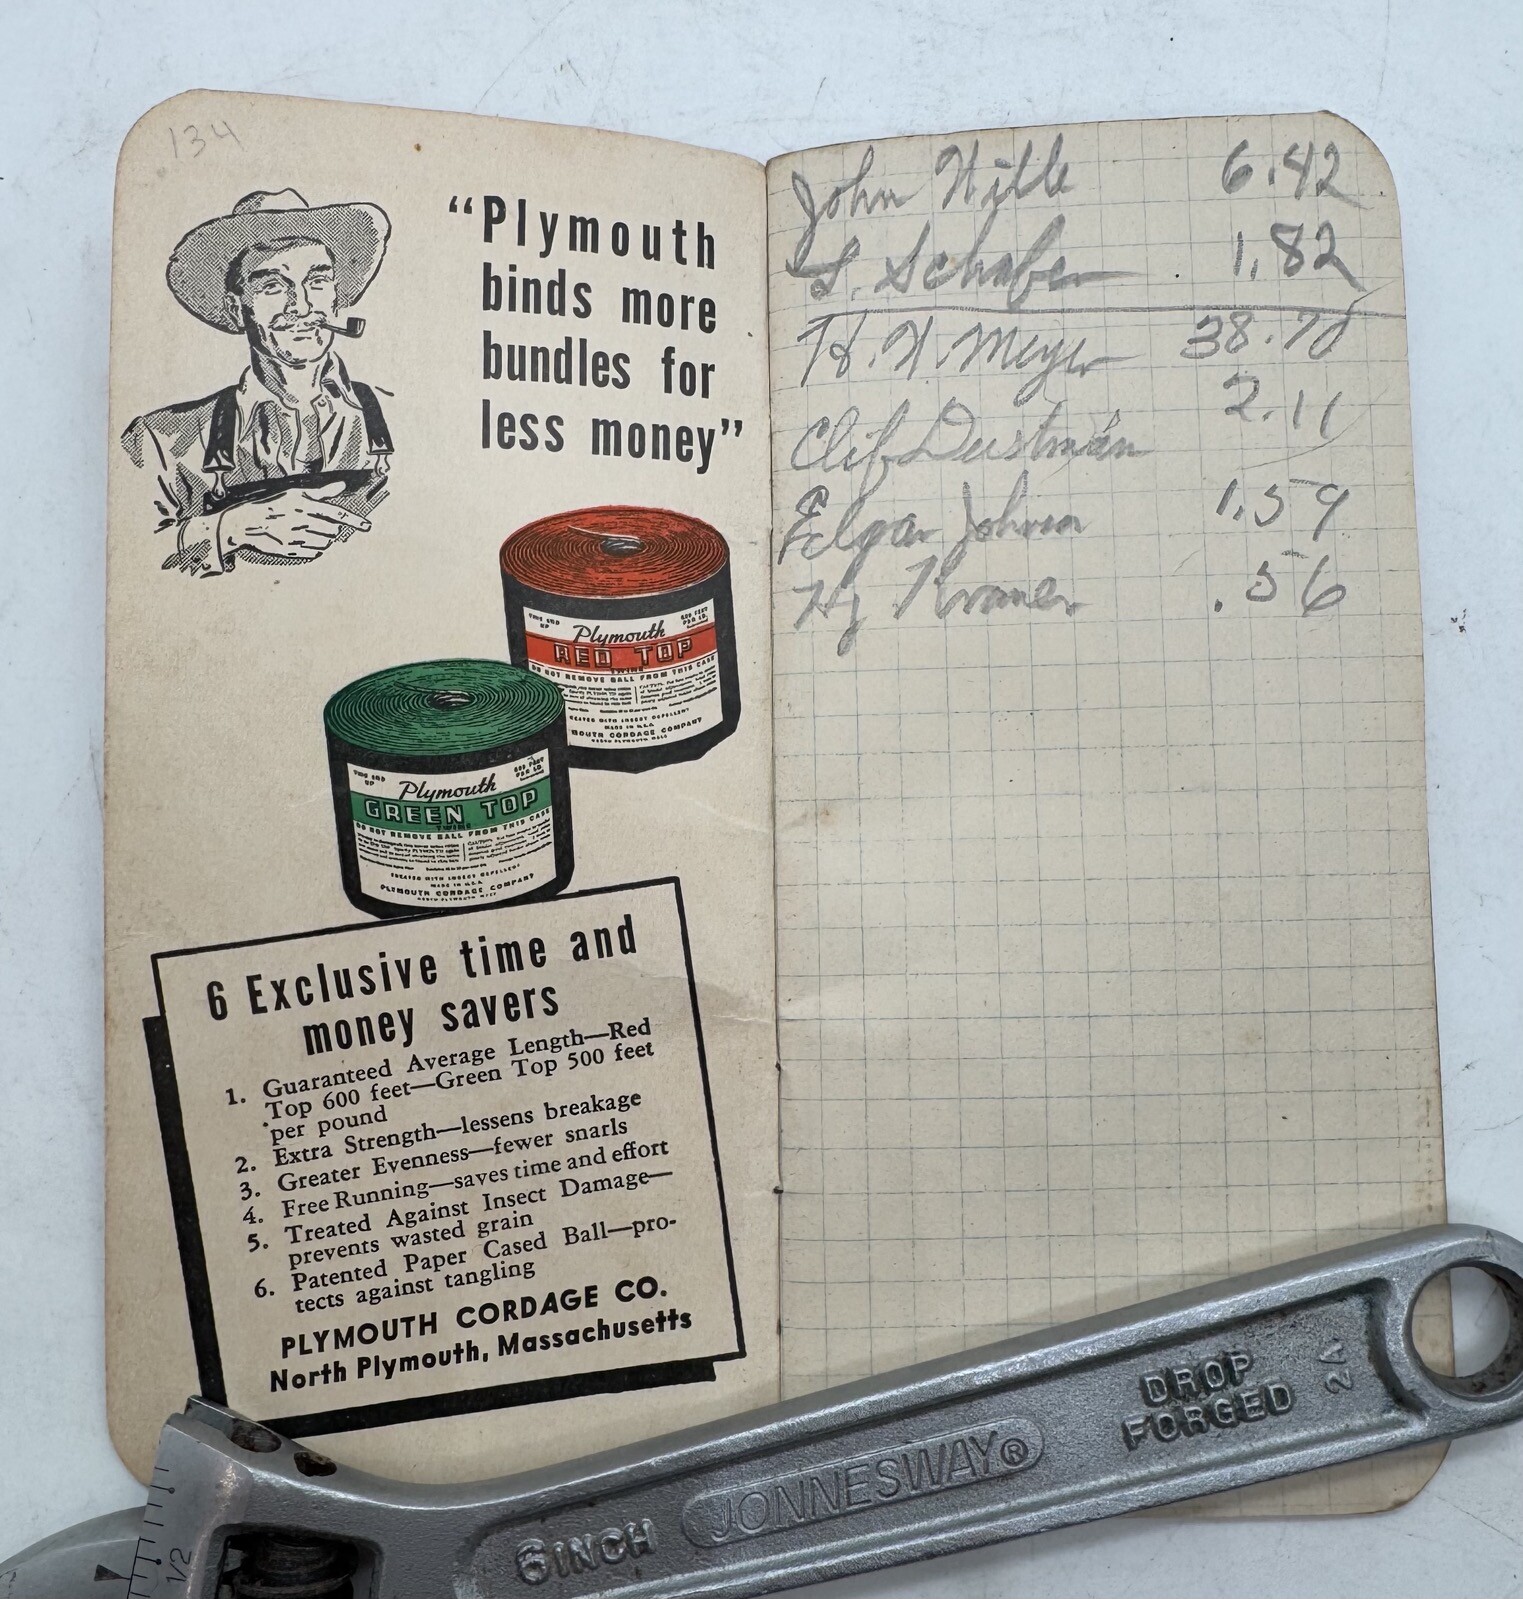 134
“Plymouth
binds more
bundles for
less money”
THIS END
UP
600 FEET
PER LB.
Plymouth
RED TOP
TWINE
DO NOT REMOVE BALL FROM THIS CASE
TREATED WITH INSECT REPELLENT
MADE IN U.S.A.
PLYMOUTH CORDAGE COMPANY
NORTH PLYMOUTH MASS
THIS END
UP
500 FEET
PER LB.
Plymouth
GREEN TOP
TWINE
DO NOT REMOVE BALL FROM THIS CASE
TREATED WITH INSECT REPELLENT
MADE IN U.S.A.
PLYMOUTH CORDAGE COMPANY
NORTH PLYMOUTH MASS
6 Exclusive time and
money savers
1. Guaranteed Average Length—Red
Top 600 feet—Green Top 500 feet
per pound
2. Extra Strength—lessens breakage
3. Greater Evenness—fewer snarls
4. Free Running—saves time and effort
5. Treated Against Insect Damage—
prevents wasted grain
6. Patented Paper Cased Ball—pro-
tects against tangling
PLYMOUTH CORDAGE CO.
North Plymouth, Massachusetts
John 6.42
L. Schafer 1.82
H. H. Meyer 38.70
Clif Dustman 2.11
John 1.59
Hy .56
DROP
FORGED
2A
JONNESWAY®
6 INCH
1/2